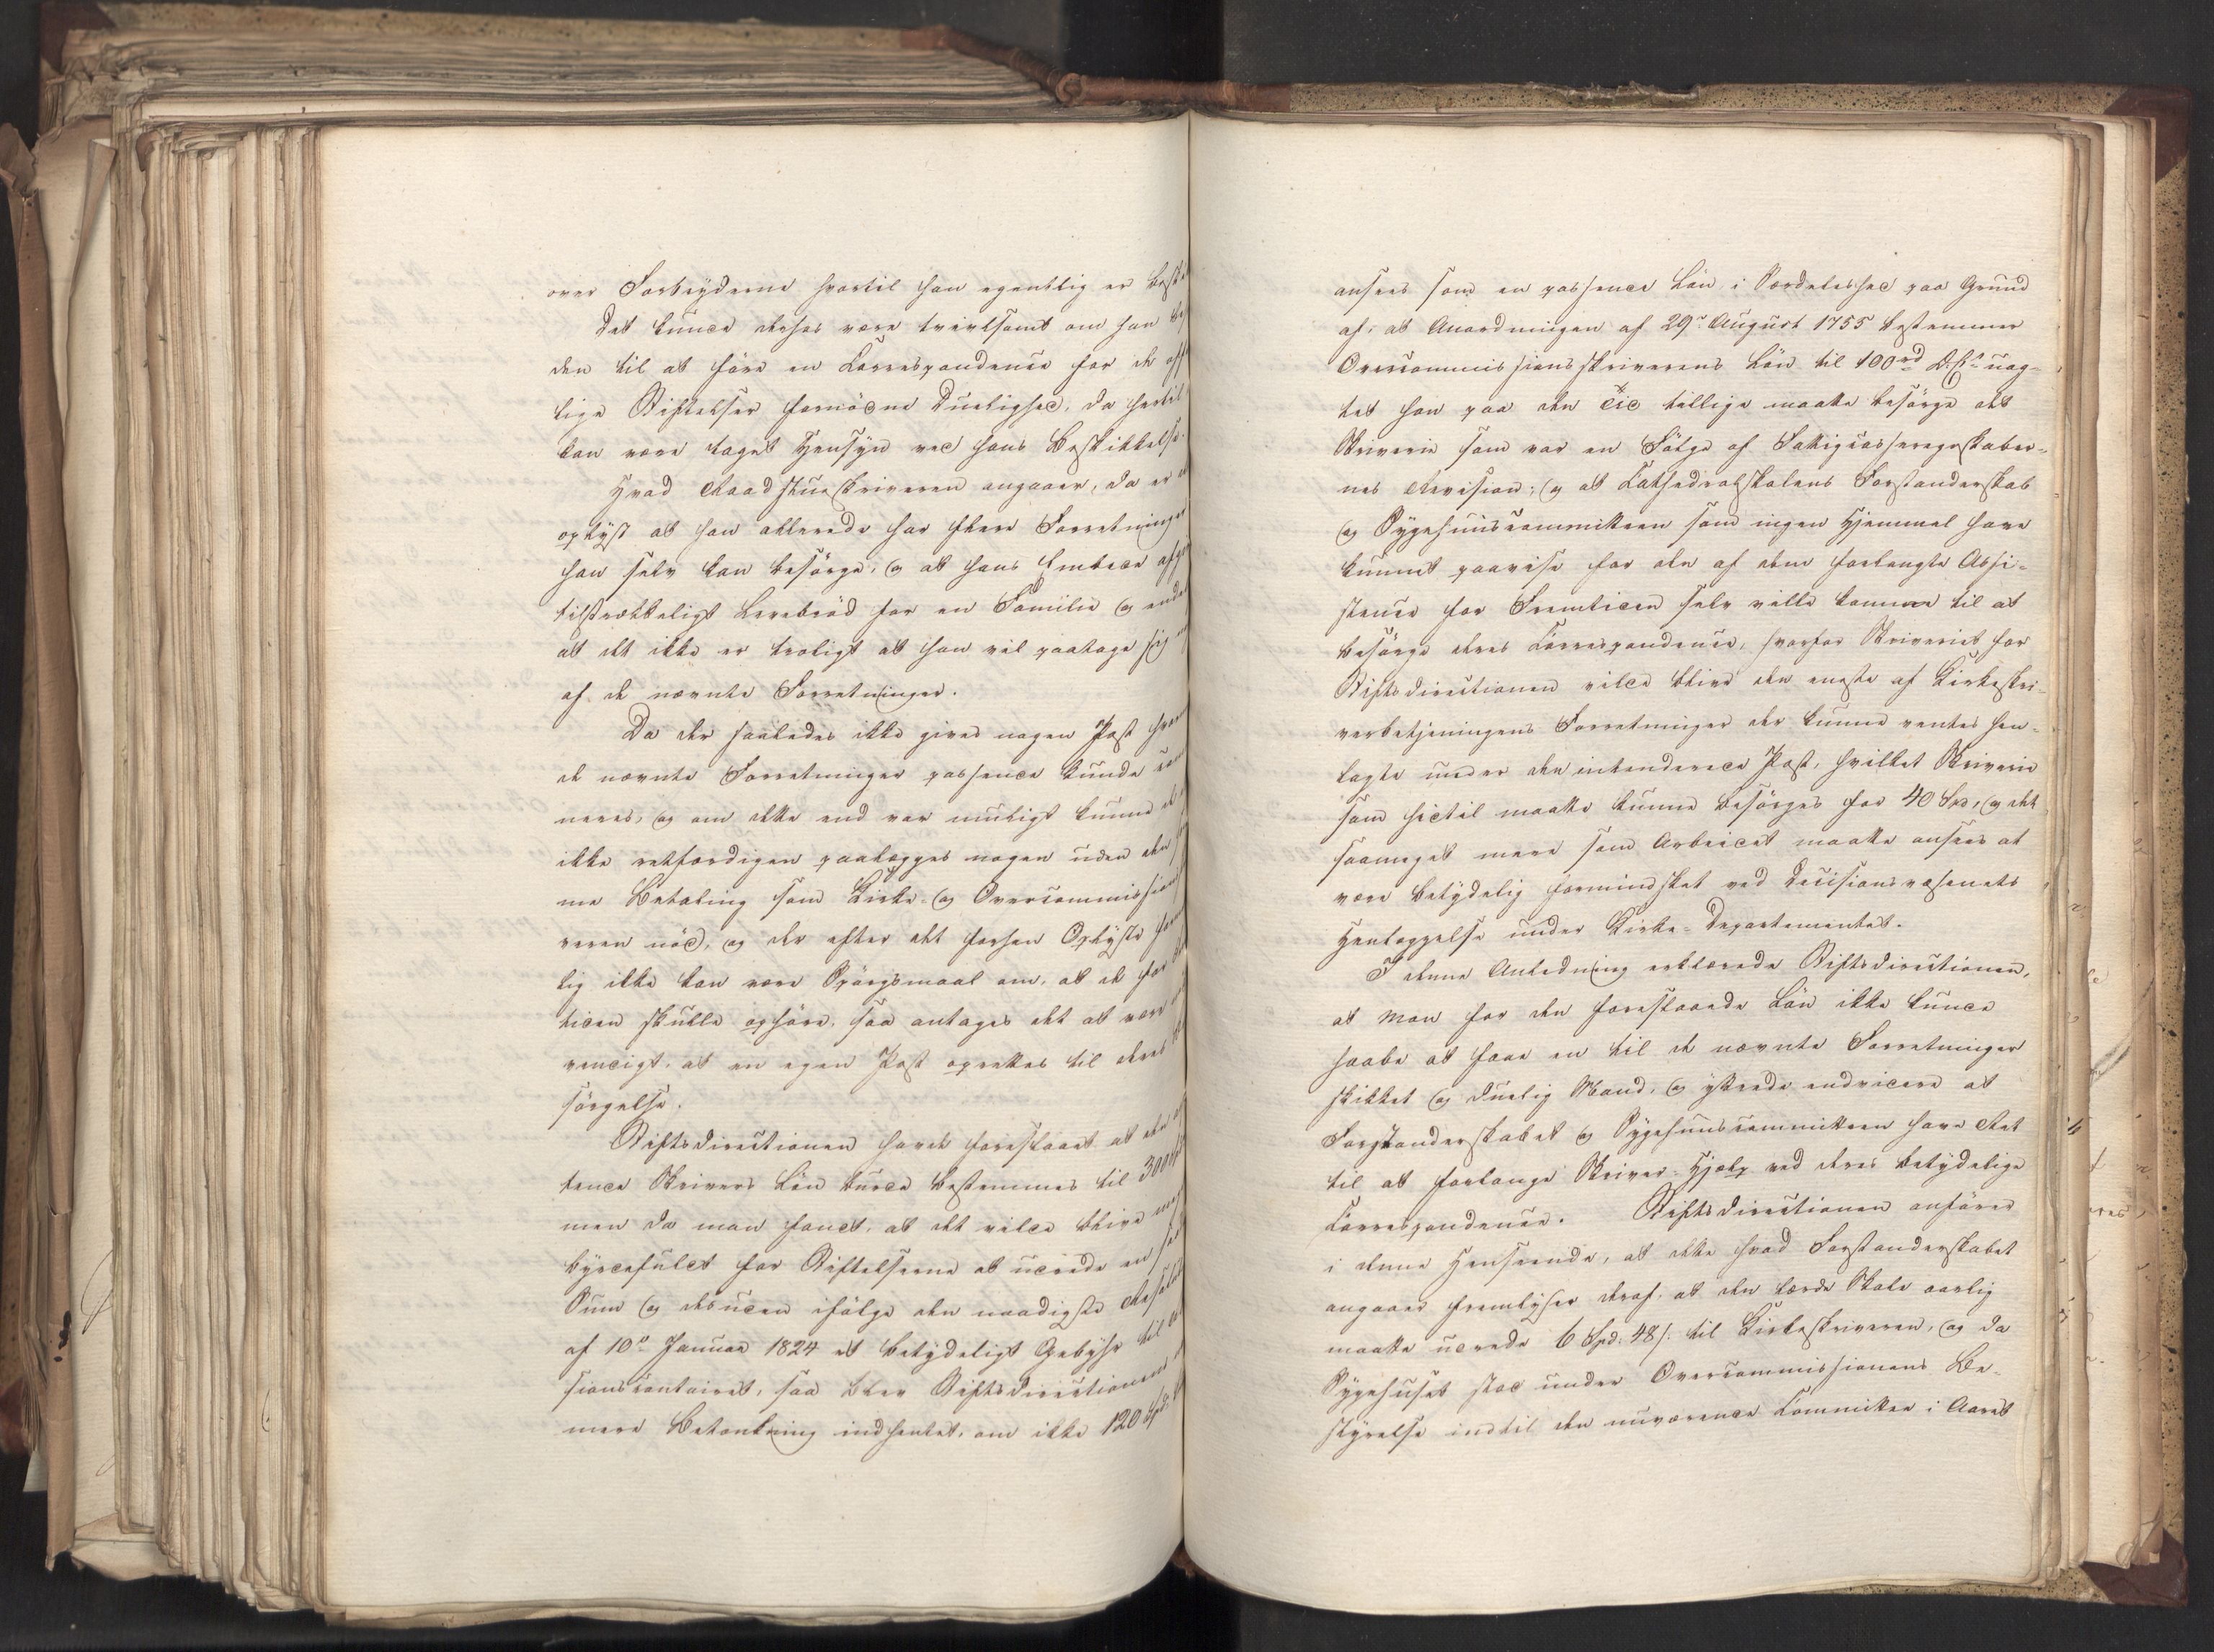 over Forbryderne hvortil han egentlig er
Det kunde ogsaa være tvivlsomt om han
den til at føre en Correspondence for de
lige Stiftelser fornødne Duelighed, da hertil
kan være taget Hensyn ved hans Beskikkelse.
Hvad Raadstueskriveren angaaer, da er
oplyst at han allerede har flere Forretninger
han selv kan besørge, og at hans Embede
tilstrækkeligt Levebrød for en Familie og
at det ikke er troligt at han vil paatage sig
af de nævnte Forretninger.
Da der saaledes ikke gives nogen Post
de nævnte Forretninger passende kunde
neres, og om dette end var muligt kunne
ikke retfærdigen paalægges nogen uden den
me Betaling som Kirke- og Overcommissions
veren nød, og der efter det forhen Oplyste
lig ikke kan være Spørgsmaal om, at de
tiden skulle ophøre, saa antages det at være
vendigt, at en egen Post oprettes til deres
sørgelse.
Stiftsdirectionen havde foreslaaet at den
tende Skrivers Løn burde bestemmes til 300
men da man fandt, at det vilde blive
byrdefuldt for Stiftelserne at udrede en
Sum og desuden ifølge den naadigste
af 10de Januar 1824 et betydeligt Gebyhr til
sionscontoiret, saa blev Stiftsdirectionens
mere Betænkning indhentet, om ikke 120 Spd.
ansees som en passende Løn i Særdeleshed paa Grund
af, at Anordningen af 29de August 1755 bestemmer
Overcommissionsskriverens Løn til 100rd D.C. uag-
tet han paa den Tid tillige maatte besørge det
Skriverie som var en Følge af Fattigcasseregnskaber-
nes Revision; og at Cathedralskolens Forstanderskab
og Sygehuuscommitteen som ingen Hjemmel have
kunnet paavise for den af dem forlangte Assi-
stence for Fremtiden selv ville komme til at
besørge deres Correspondence, hvorfor Skriveriet for
Stiftsdirectionen vilde blive den eneste af Kirkeskri-
verbetjeningens Forretninger der kunne ventes hen-
lagte under den intenderede Post, hvilket Skriverie
som hidtil maatte kunne besørges for 40 Spd, og det
saameget mere som Arbeidet maatte ansees at
være betydelig formindsket ved Decisionsvæsenets
Henlæggelse under Kirke-Departementet.
I denne Anledning erklærede Stiftsdirectionen,
at man for den foreslaaede Løn ikke kunde
haabe at faae en til de nævnte Forretninger
skikket og duelig Mand, og yttrede endvidere at
Forstanderskabet og Sygehuuscommitteen have Ret
til at forlange Skriver-Hjælp ved deres betydelige
Correspondence. Stiftsdirectionen anfører
i denne Henseende, at dette hvad Forstanderskabet
angaaer fremlyser deraf, at den lærde Skole aarlig
maatte udrede 6 Spd. 48 s. til Kirkeskriveren, og da
Sygehuset stod under Overcommissionens Be-
styrelse indtil den nuværende Committee i Aaret